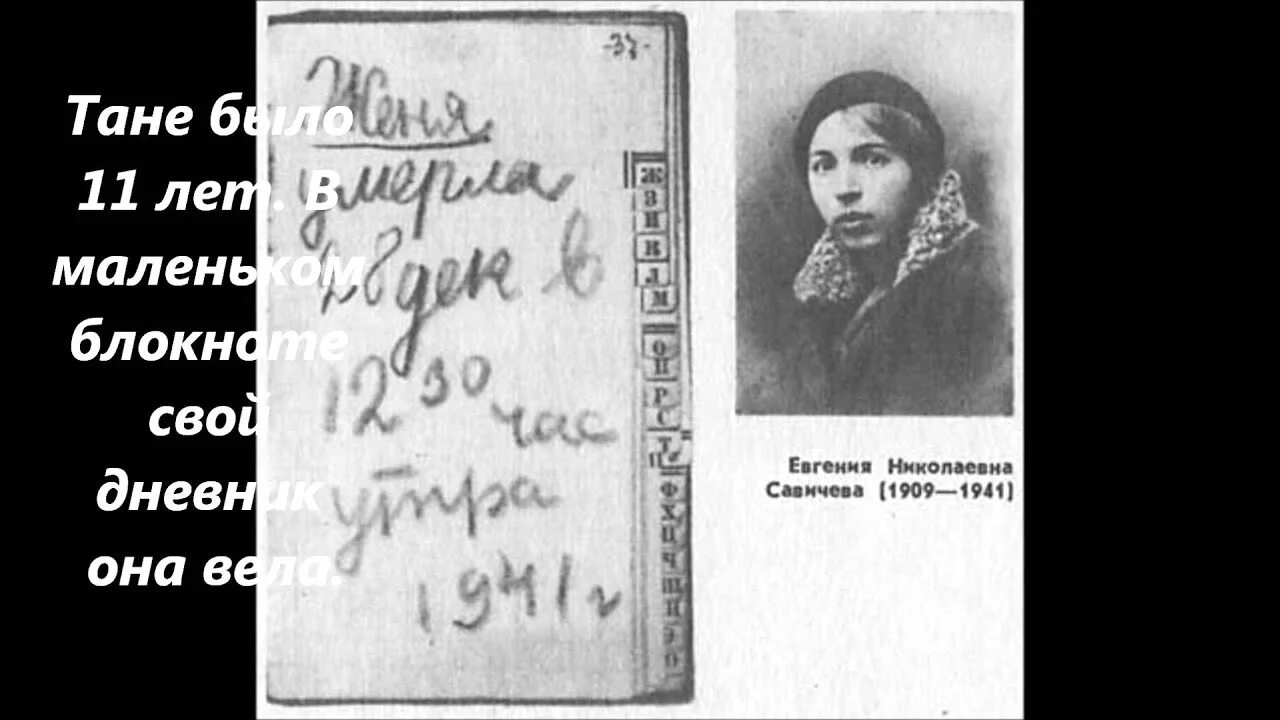 Тане было
11 лет. В
маленьком
блокноте
свой
дневник
она вела.
-37-
Женя
умерла
28 дек в
12 30 час
утра
1941 г
Ж
З
И
К
Л
М
О
П
Р
С
Т
Ф
Х
Ц
Ч
Щ
Э
Евгения Николаевна
Савичева (1909—1941)